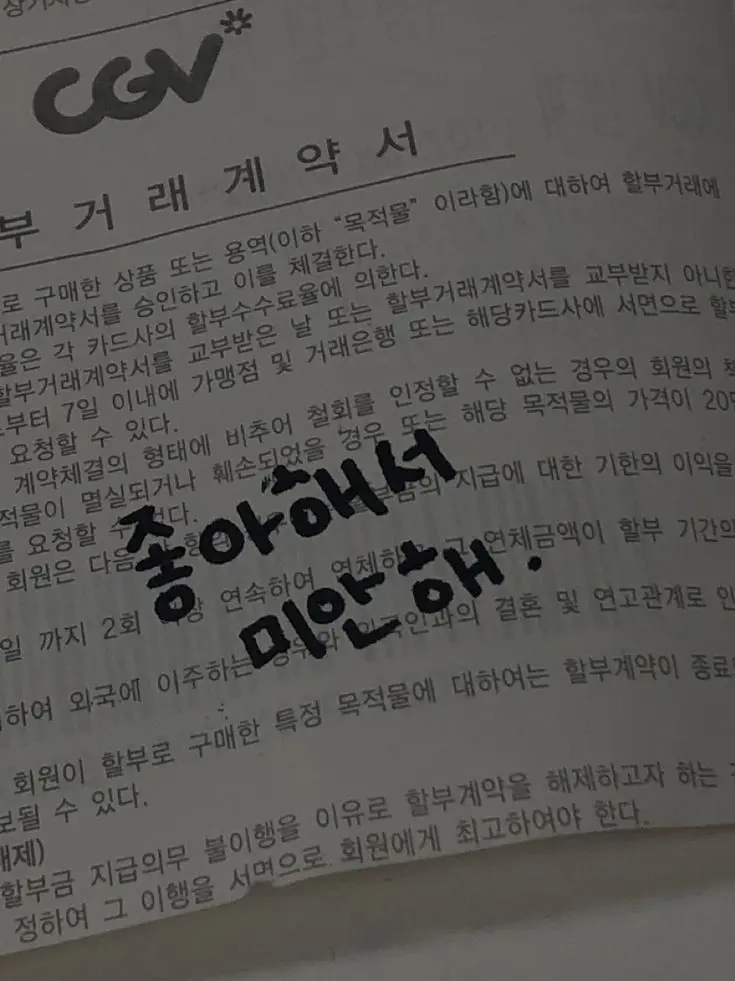 CGV
부 거 래 계 약 서
로 구매한 상품 또는 용역(이하 “목적물” 이라함)에 대하여 할부거래에
거래계약서를 승인하고 이를 체결한다.
율은 각 카드사의 할부수수료율에 의한다.
할부거래계약서를 교부받은 날 또는 할부거래계약서를 교부받지 아니한
부터 7일 이내에 가맹점 및 거래은행 또는 해당카드사에 서면으로 할부
요청할 수 있다.
계약체결의 형태에 비추어 철회를 인정할 수 없는 경우의 회원의
적물이 멸실되거나 훼손되었을 경우 또는 해당 목적물의 가격이 20만
를 요청할 수 없다.
회원은 다음 지급에 대한 기한의 이익을
좋아해서
일 까지 2회 연속하여 연체하 그 연체금액이 할부 기간의
미안해.
하여 외국에 이주하는 경우와 외국인과의 결혼 및 연고관계로 인
회원이 할부로 구매한 특정 목적물에 대하여는 할부계약이 종료
보될 수 있다.
해제)
할부금 지급의무 불이행을 이유로 할부계약을 해제하고자 하는
정하여 그 이행을 서면으로 회원에게 최고하여야 한다.